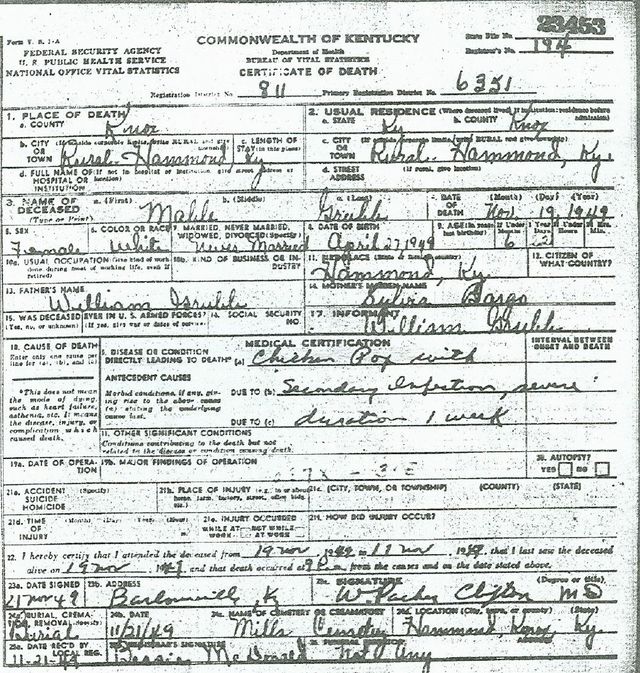 23453
Form V. S. 1-A
COMMONWEALTH OF KENTUCKY
State File No.
FEDERAL SECURITY AGENCY
Department of Health
Registrar's No. 194
U. S. PUBLIC HEALTH SERVICE
BUREAU OF VITAL STATISTICS
NATIONAL OFFICE VITAL STATISTICS
CERTIFICATE OF DEATH
Registration District No. 811 Primary Registration District No. 6351
1. PLACE OF DEATH
2. USUAL RESIDENCE (Where deceased lived. If institution: residence before admission)
a. COUNTY Knox
a. STATE Ky b. COUNTY Knox
b. CITY OR TOWN Rural Hammond Ky
c. LENGTH OF STAY (in this place)
c. CITY OR TOWN Rural. Hammond, Ky.
d. FULL NAME OF HOSPITAL OR INSTITUTION
d. STREET ADDRESS (If rural, give location)
3. NAME OF DECEASED (Type or Print) a. (First) b. (Middle) c. (Last)
4. DATE OF DEATH (Month) (Day) (Year) Nov. 19, 1949
5. SEX Female
6. COLOR OR RACE White
7. MARRIED, NEVER MARRIED, WIDOWED, DIVORCED (Specify) Never Married
8. DATE OF BIRTH April 27 1949
9. AGE (In years last birthday) 6
10a. USUAL OCCUPATION (Give kind of work done during most of working life, even if retired)
10b. KIND OF BUSINESS OR INDUSTRY
11. BIRTHPLACE Hammond, Ky.
12. CITIZEN OF WHAT COUNTRY?
13. FATHER'S NAME William
14. MOTHER'S MAIDEN NAME Bargo
15. WAS DECEASED EVER IN U. S. ARMED FORCES? (Yes, no, or unknown) (If yes, give war or dates of service)
16. SOCIAL SECURITY NO.
17. INFORMANT William
18. CAUSE OF DEATH
MEDICAL CERTIFICATION
INTERVAL BETWEEN ONSET AND DEATH
Enter only one cause per line for (a), (b), and (c)
I. DISEASE OR CONDITION DIRECTLY LEADING TO DEATH* (a) Chicken Pox with
*This does not mean the mode of dying, such as heart failure, asthenia, etc. It means the disease, injury, or complication which caused death.
ANTECEDENT CAUSES
Morbid conditions, if any, giving rise to the above cause (a) stating the underlying cause last.
DUE TO (b) Secondary Infection, severe
DUE TO (c) duration 1 week
II. OTHER SIGNIFICANT CONDITIONS
Conditions contributing to the death but not related to the disease or condition causing death.
19a. DATE OF OPERATION
19b. MAJOR FINDINGS OF OPERATION
20. AUTOPSY?
YES NO
21a. ACCIDENT SUICIDE HOMICIDE (Specify)
21b. PLACE OF INJURY (e.g., in or about home, farm, factory, street, office bldg., etc.)
21c. (CITY, TOWN, OR TOWNSHIP) (COUNTY) (STATE)
21d. TIME OF INJURY (Month) (Day) (Year) (Hour)
21e. INJURY OCCURRED WHILE AT WORK NOT WHILE AT WORK
21f. HOW DID INJURY OCCUR?
22. I hereby certify that I attended the deceased from 19 Nov, 1949 to 19 Nov, 1949, that I last saw the deceased
alive on 19 Nov 1949, and that death occurred at from the causes and on the date stated above.
23a. DATE SIGNED 21 Nov 49
23b. ADDRESS Barbourville, K
23c. SIGNATURE (Degree or title) Clifton MD
24a. BURIAL, CREMATION, REMOVAL (Specify) Burial
24b. DATE 11/21/49
24c. NAME OF CEMETERY OR CREMATORY Mills Cemetery
24d. LOCATION (City, town, or county) (State) Hammond, Knox, Ky.
25a. DATE REC'D BY LOCAL REG. 11-21-49
25b. REGISTRAR'S SIGNATURE Bessie McDonald
26. FUNERAL DIRECTOR ADDRESS Not Any